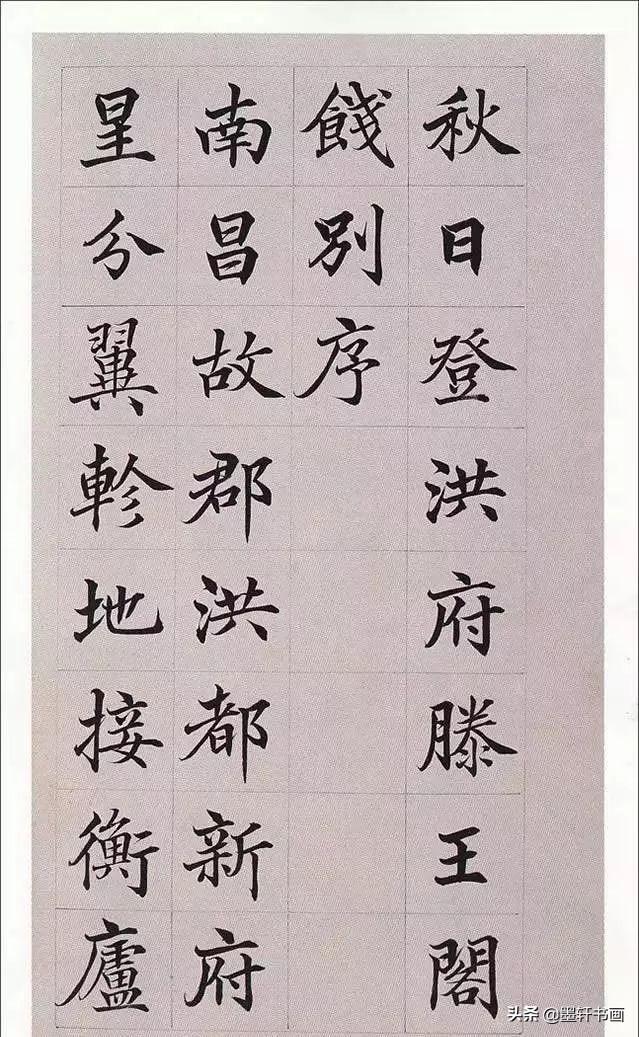 秋日登洪府滕王閣
餞別序
南昌故郡洪都新府
星分翼軫地接衡廬
头条 @墨轩书画